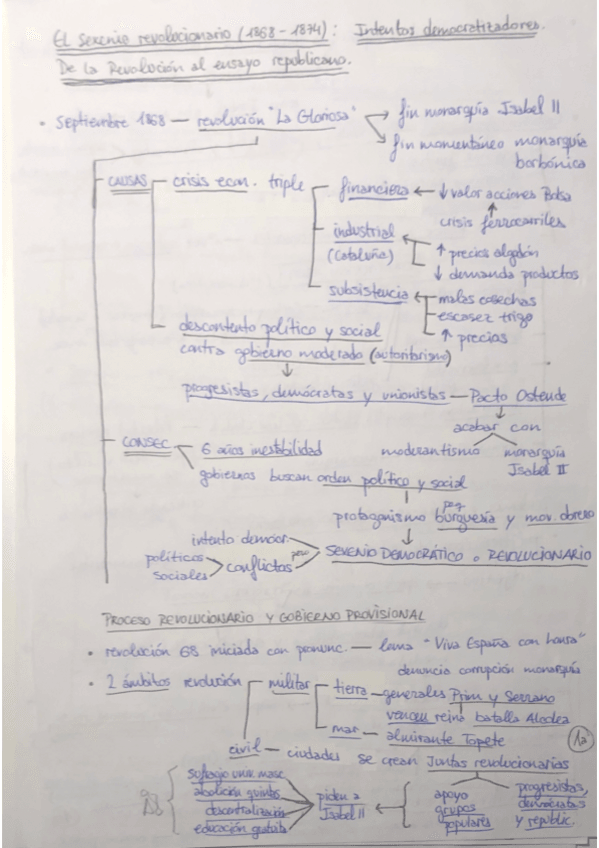 El Sexenio revolucionario (1868-1874): Intentos democratizadores.
De la Revolución al ensayo republicano.
• Septiembre 1868 — revolución "La Gloriosa" → fin monarquía Isabel II
→ fin momentáneo monarquía borbónica
CAUSAS — crisis econ. triple
financiera ← ↓ valor acciones Bolsa
↑
crisis ferrocarriles
industrial (Cataluña) ← ↑ precios algodón
↓ demanda productos
subsistencia ← malas cosechas
escasez trigo
↑ precios
descontento político y social
contra gobierno moderado (autoritarismo)
↓
progresistas, demócratas y unionistas — Pacto Ostende
↓
acabar con
moderantismo
monarquía Isabel II
CONSEC
6 años inestabilidad
gobiernos buscan orden político y social
protagonismo peq burguesía y mov. obrero
↓
SEXENIO DEMOCRÁTICO o REVOLUCIONARIO
intento democr.
pero
políticos
sociales > conflictos
PROCESO REVOLUCIONARIO Y GOBIERNO PROVISIONAL
• revolución 68 iniciada con pronunc. — lema "Viva España con honra"
denuncia corrupción monarquía
• 2 ámbitos revolución
militar
tierra — generales Prim y Serrano
vencen reina batalla Alcolea
mar — almirante Topete
1a
civil — ciudades se crean Juntas revolucionarias
apoyo grupos populares
progresistas, demócratas y republic.
piden a Isabel II
sufragio univ. masc.
abolición quintas
descentralización
educación gratuita